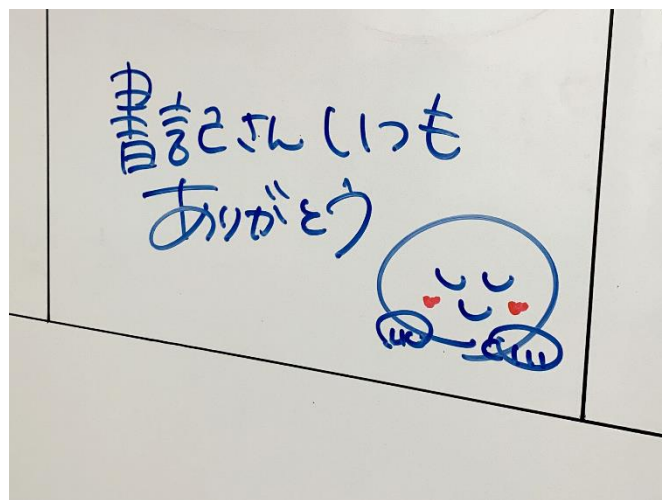 書記さんいつも
ありがとう